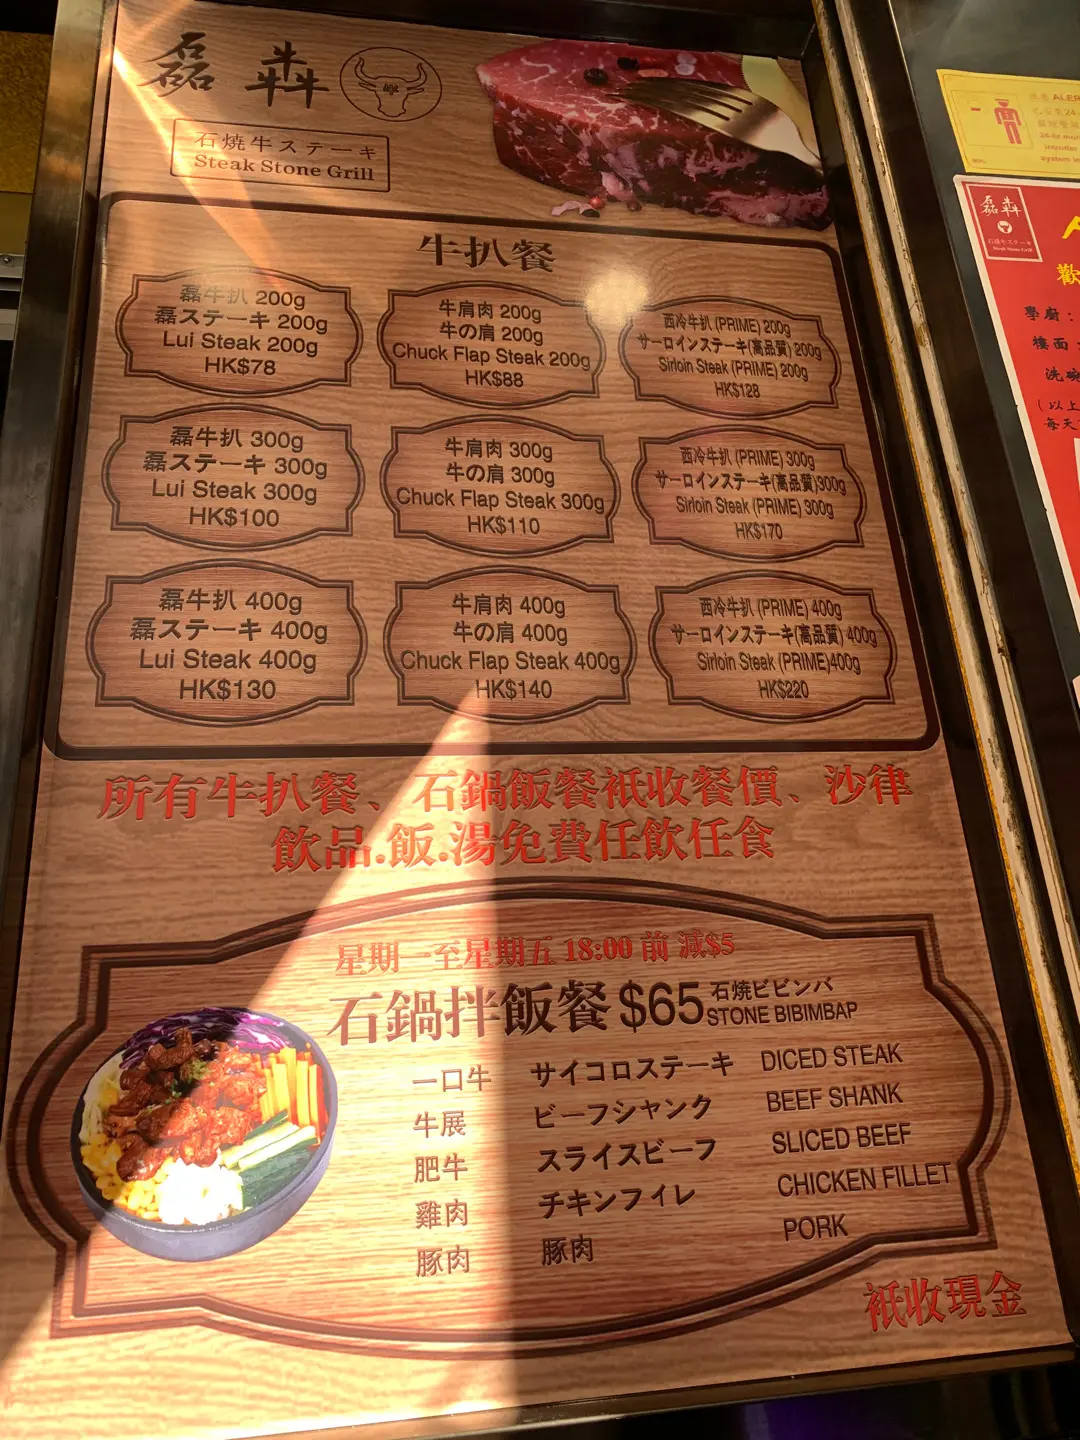 磊犇
石焼牛ステーキ
Steak Stone Grill
牛扒餐
磊牛扒 200g
磊ステーキ 200g
Lui Steak 200g
HK$78
牛肩肉 200g
牛の肩 200g
Chuck Flap Steak 200g
HK$88
西冷牛扒 (PRIME) 200g
サーロインステーキ(高品質) 200g
Sirloin Steak (PRIME) 200g
HK$128
磊牛扒 300g
磊ステーキ 300g
Lui Steak 300g
HK$100
牛肩肉 300g
牛の肩 300g
Chuck Flap Steak 300g
HK$110
西冷牛扒 (PRIME) 300g
サーロインステーキ(高品質)300g
Sirloin Steak (PRIME) 300g
HK$170
磊牛扒 400g
磊ステーキ 400g
Lui Steak 400g
HK$130
牛肩肉 400g
牛の肩 400g
Chuck Flap Steak 400g
HK$140
西冷牛扒 (PRIME) 400g
サーロインステーキ(高品質) 400g
Sirloin Steak (PRIME)400g
HK$220
所有牛扒餐、石鍋飯餐祇收餐價、沙律
飲品.飯.湯免費任飲任食
星期一至星期五 18:00 前 減$5
石鍋拌飯餐 $65 石焼ビビンバ
STONE BIBIMBAP
一口牛 サイコロステーキ DICED STEAK
牛展 ビーフシャンク BEEF SHANK
肥牛 スライスビーフ SLICED BEEF
雞肉 チキンフィレ CHICKEN FILLET
豚肉 豚肉 PORK
祇收現金
磊犇
石焼牛ステーキ
Steak Stone Grill
歡
學廚：
樓面
洗碗
(以上
每天